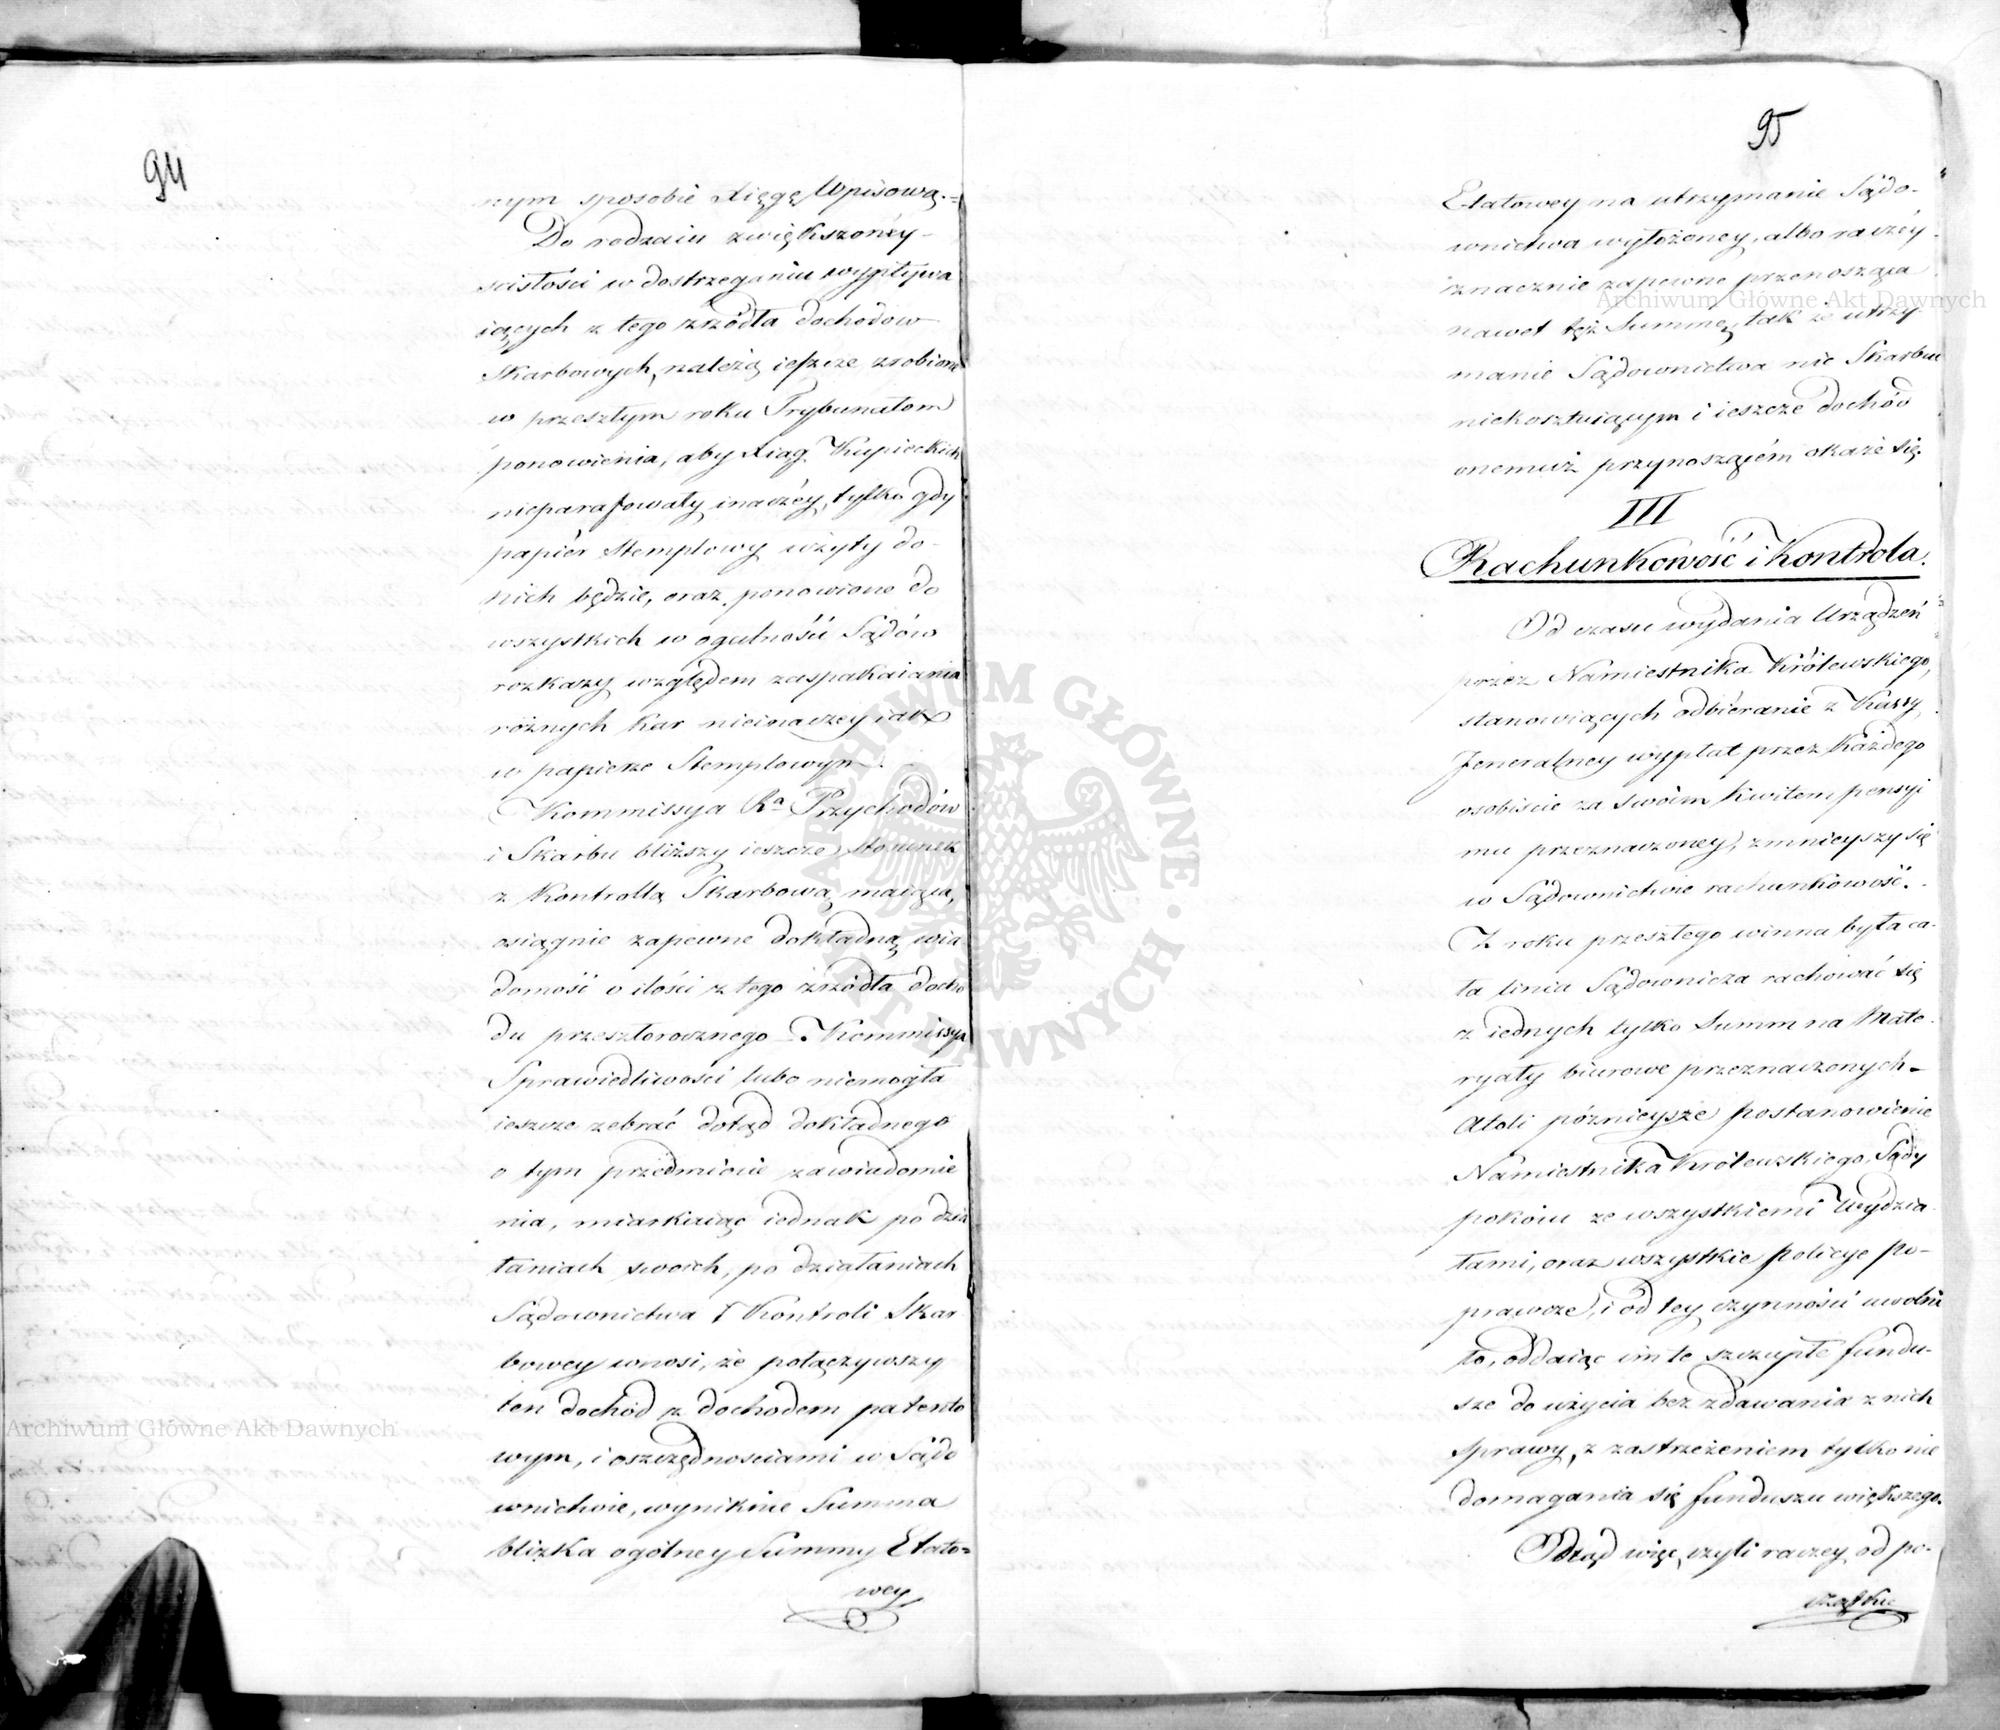 94
nym sposobie Xięgę Wpisową.=
Do rodzaiu zwiększonéy
scisłości w dostrzeganiu wypływa
iących z tego zrzódła dochodow
Skarbowych, należą ieszcze zrobione
w przeszłym roku Trybunałom
ponowienia, aby Xiąg Kupieckich
nieparafowały inaczéy, tylko gdy
papiér Stemplowy użyty do-
nich będzie, oraz ponowione do
wszystkich w ogulności Sądów
rozkazy względem zaspakaiania
różnych kar nieinaczey iak
w papierze Stemplowym.
Kommissya Ra Przychodów
i Skarbu bliższy ieszcze stosunek
z Kontrollą Skarbową maiąca,
osiągnie zapewne dokładną wia
domość o ilości z tego zrzódła docho
du przeszłorocznego. Kommissya
Sprawiedliwości lubo niemogła
ieszcze zebrać dotąd dokładnego
o tym przedmiocie zawiadomie
nia, miarkuiąc iednak po dzia
łaniach swoich, po działaniach
Sądownictwa i Kontroli Skar
bowey wnosi, że połączywszy
ten dochód z dochodem patento
wym, i oszczędnościami w Sądo
wnictwie, wyniknie Summa
blizka ogólney Summy Etato=
wey
95
Etatowey na utrzymanie Sądo-
wnictwa wyłożoney, albo raczéy
znacznie zapewne przenosząca
nawet tęż Summę, tak że utrzy-
manie Sądownictwa nic Skarbu
niekosztuiącym i ieszcze dochód
onemuż przynoszącém okaże się.
III
Rachunkowość i Kontrola.
Od czasu wydania Urządzeń
przez Namiestnika Królewskiego,
stanowiących odbiéranie z Kassy
Jeneralney wypłat przez każdego
osobiście za swoim kwitem pensyi
mu przeznaczoney, zmnieyszy się
w Sądownictwie rachunkowość.
Z roku przeszłego winna była ca-
ła linia Sądownicza rachować się
z iednych tylko Summ na Mate-
ryały biurowe przeznaczonych-
Atoli późnieysze postanowienie
Namiestnika Królewskiego, Sądy
pokóiu ze wszystkiemi Wydzia-
łami, oraz wszystkie policye po-
prawcze, i od tey czynności uwolni
ło, oddaiąc im te szczupłe fundu-
sze do użycia bez zdawania z nich
sprawy, z zastrzeżeniem tylko nie
domagania się funduszu większego.
Odtąd więc, czyli raczey od po-
czątku